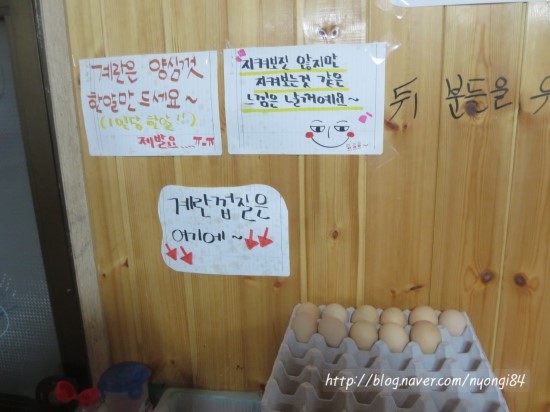 계란은 양심껏
한알만 드세요~
(1인당 한알!!)
제발요....ㅠ.ㅠ
지켜보진 않지만
지켜보는것 같은
느낌은 날꺼예요~
뒤 분들을 위
계란 껍질은
여기에~
http://blog.naver.com/nyongi84